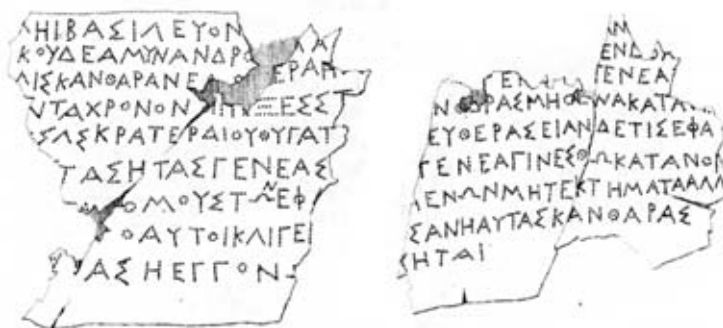 ΛΗΙΒΑΣΙΛΕΥΟΝ
ΚΟΥΔΕΑΜΥΝΑΝΔΡΟ ΛΑ
ΛΙΣΚΑΝΘΑΡΑΝΕ ΕΡΑΝ
ΝΤΑΧΡΟΝΟΝ ΞΕΣΣ
ΣΛΣΚΡΑΤΕΡΑΙΟΥΘΥΓΑΤ
ΤΑΣΗΤΑΣΓΕΝΕΑΣ
ΟΜΟΥΣΤΩΝΕΦ
ΟΑΥΤΟΙΚΛΙΓΕ
ΑΣΗΕΓΓΟΝ
ΑΝ
ΕΝΔΟΚ
ΓΕΝ ΓΕΝΕΑ
Ν ΡΑΣΜΗΘΕΝΑΚΑΤΑ
ΕΥΘΕΡΑΣΕΙΑΝΔΕΤΙΣΕΦΑ
ΓΕΝΕΑΓΙΝΕΣΘΩΚΑΤΑΝΟ
ΕΝΩΝΜΗΤΕΚΤΗΜΑΤΑΑΛΛ
ΣΑΝΗΑΥΤΑΣΚΑΝΘΑΡΑΣ
ΣΗΤΑΙ